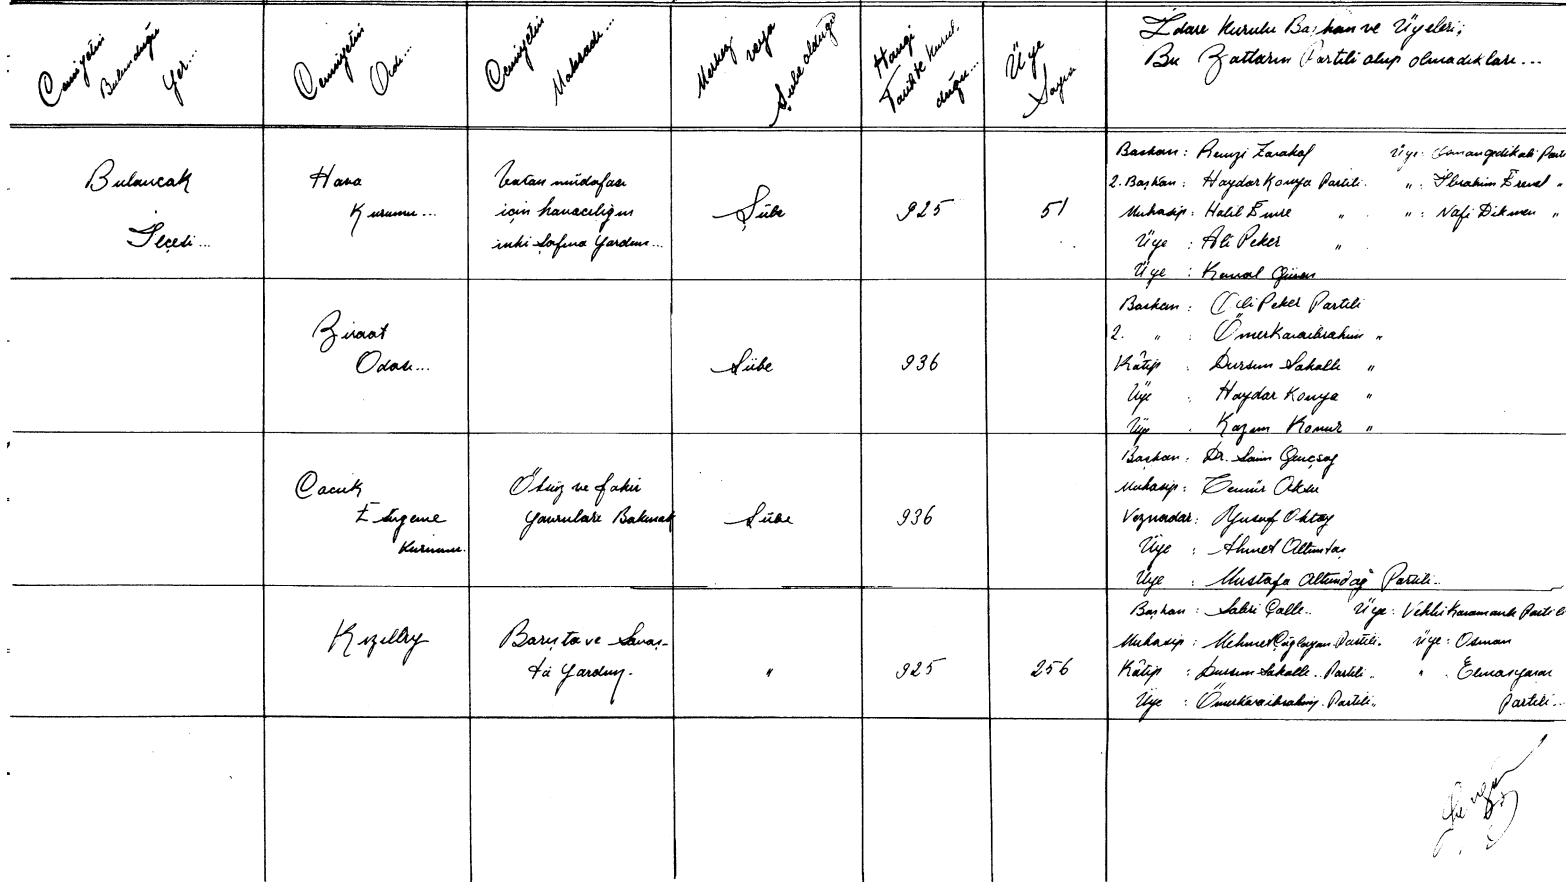 Cemiyetin Bulunduğu Yer...
Cemiyetin Adı...
Cemiyetin Maksadı...
Merkez veya Şube olduğu
Hangi Tarihte kurulduğu...
Üye Sayısı
İdare Kurulu Başkan ve Üyeleri;
Bu Zatların Partili olup olmadıkları...
Bulancak
İlçesi...
Hava
Kurumu...
Vatan müdafası
için havacılığın
inkişafına Yardım...
Şübe
925
51
Başkan: Remzi Üye: Osman Parti
2. Başkan: Haydar Konya Partili. " : İbrahim "
Muhasip: Halil Emre " " : Nafi Dikmen "
Üye : Ali Peker "
Üye : Kemal Güven
Ziraat
Odası...
Şübe
936
Başkan: Ali Peker Partili
2. " : Ömer Karaibrahim "
Kâtip : Dursun Sakallı "
Üye : Haydar Konya "
Üye : Kazım Konur "
Çocuk
Esirgeme
Kurumu.
Öksüz ve fakir
Yavruları Bakmak
Şübe
936
Başkan: Dr. Saim Gençsoy
Muhasip: Temür Aksu
Veznadar: Yusuf Oktay
Üye : Ahmet Altuntaş
Üye : Mustafa Altundağ Partili..
Kızıllay
Barışta ve Savaş-
ta Yardım.
"
925
256
Başkan: Sabri Çallı.. Üye: Vehbi Karamanlı Partili
Muhasip: Mehmet Çağlayan Partili. Üye: Osman
Kâtip : Dursun Sakallı.. Partili.. " . Elmasyaran
Üye : Ömer Karaibrahim. Partili.. Partili...